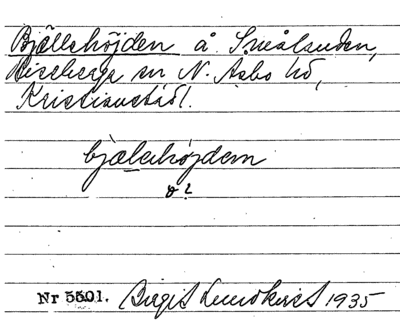 Bjällehöjden å Smålsuden,
Riseberga sn N. Åsbo hd,
Kristianstad l.
bjælehöjdem
Nr 5501. Birgit Lundkvist 1935